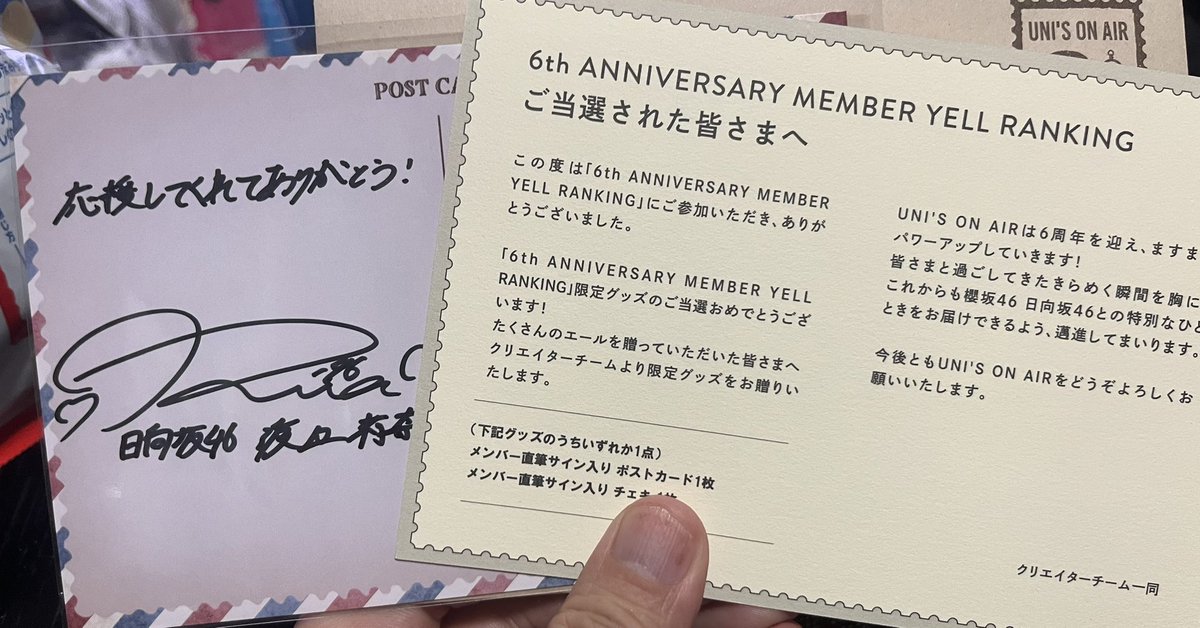 POST CA
応援してくれてありがとう!
日向坂46
UNI'S ON AIR
6th ANNIVERSARY MEMBER YELL RANKING
ご当選された皆さまへ
この度は「6th ANNIVERSARY MEMBER
YELL RANKING」にご参加いただき、ありが
とうございました。
「6th ANNIVERSARY MEMBER YELL
RANKING」限定グッズのご当選おめでとうござ
います!
たくさんのエールを贈っていただいた皆さまへ
クリエイターチームより限定グッズをお贈りい
たします。
(下記グッズのうちいずれか1点)
メンバー直筆サイン入り ポストカード1枚
メンバー直筆サイン入り チェキ1枚
UNI'S ON AIRは6周年を迎え、ますま
パワーアップしていきます!
皆さまと過ごしてきたきらめく瞬間を胸に
これからも櫻坂46 日向坂46との特別なひと
ときをお届けできるよう、邁進してまいります。
今後ともUNI'S ON AIRをどうぞよろしくお
願いいたします。
クリエイターチーム一同